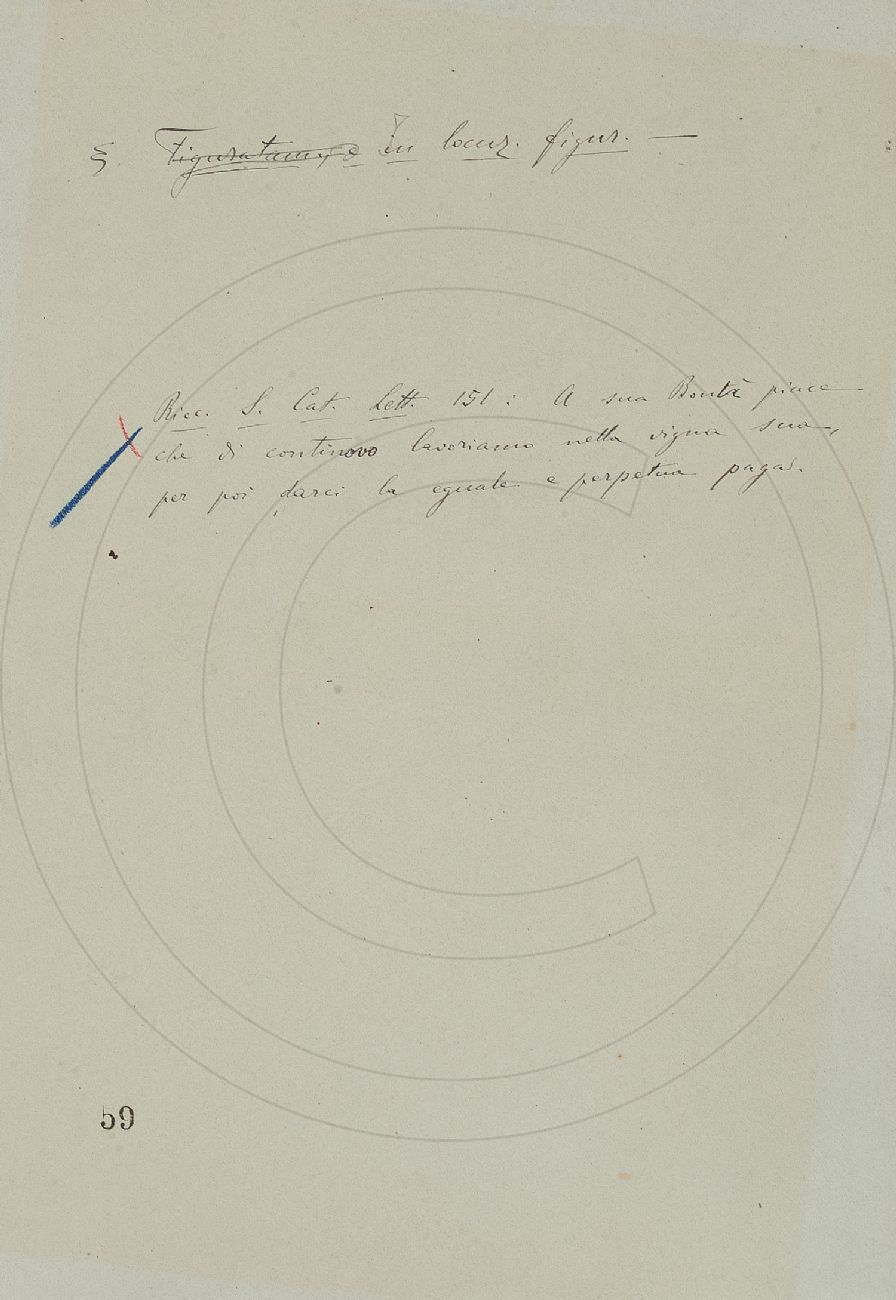 §. Figuratam. e In locuz. figur. —
Ricc. S. Cat. Lett. 151: A sua Bontà piace
che di continovo lavoriamo nella vigna sua,
per poi darci la eguale e perpetua paga.
59